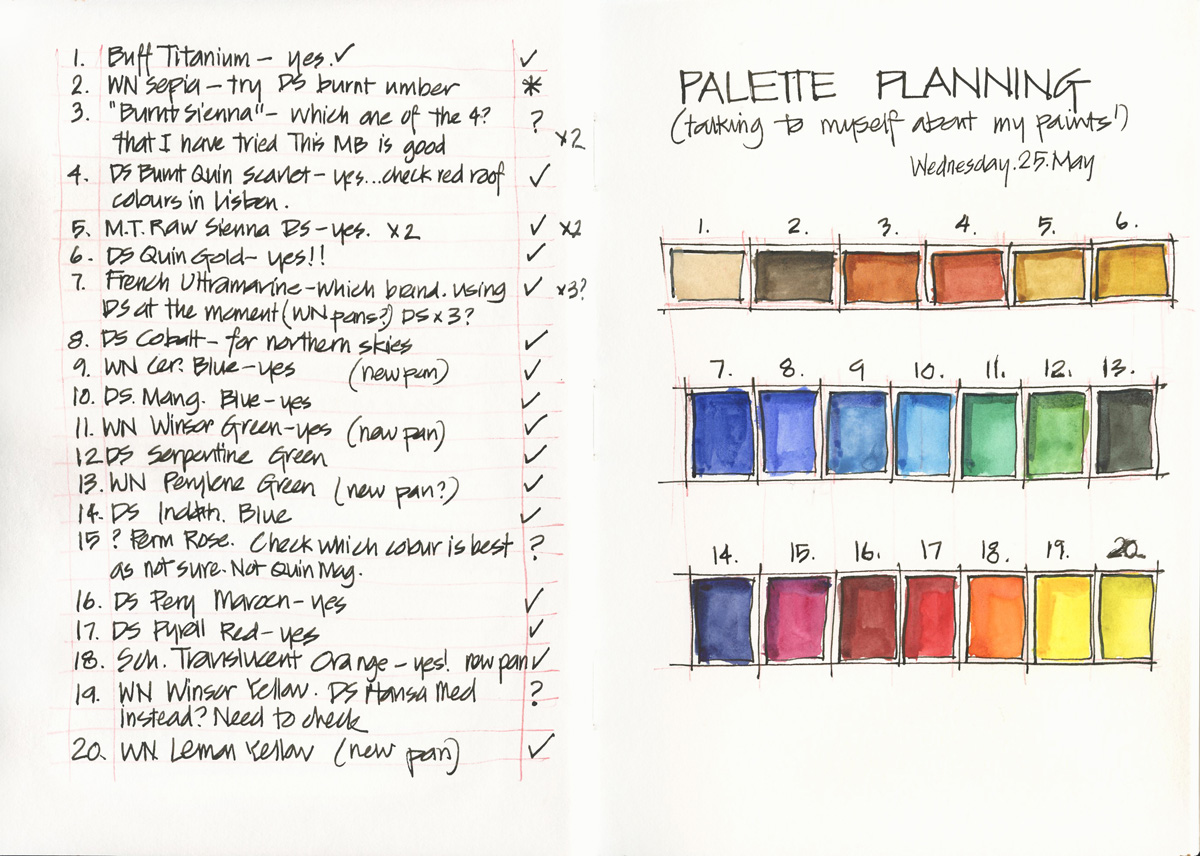 1. Buff Titanium - yes. ✓ ✓
2. WN Sepia - try DS burnt umber *
3. "Burnt Sienna" - which one of the 4? ?
that I have tried This MB is good x2
4. DS Burnt Quin Scarlet - yes...check red roof ✓
colours in Lisbon.
5. M.T. Raw Sienna DS - yes. x2 ✓ x2
6. DS Quin Gold - yes!! ✓
7. French Ultramarine - which brand. using ✓ x3?
DS at the moment (WN pans?) DS x 3?
8. DS Cobalt - for northern skies ✓
9. WN Cer. Blue - yes (new pan) ✓
10. DS. Mang. Blue - yes ✓
11. WN Winsor Green - yes (new pan) ✓
12 DS Serpentine Green ✓
13. WN Perylene Green (new pan?) ✓
14. DS Indath. Blue ✓
15 ? Perm Rose. Check which colour is best ?
as not sure. Not Quin Mag.
16. DS Pery Maroon - yes ✓
17. DS Pyroll Red - yes ✓
18. Sch. Translucent Orange - yes! new pan ✓
19. WN Winsor Yellow. DS Hansa Med ?
instead? Need to check
20. WN Lemon Yellow (new pan) ✓
PALETTE PLANNING
(talking to myself about my paints!)
Wednesday.25.May
1. 2. 3. 4. 5. 6.
7. 8. 9 10. 11. 12. 13.
14. 15. 16. 17 18. 19. 20.